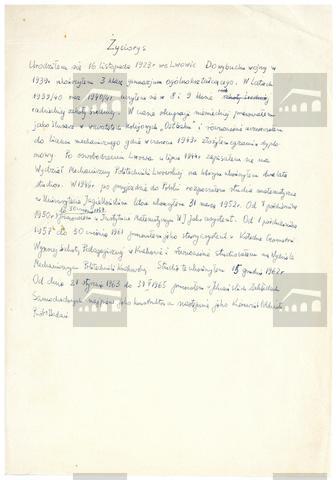 Życiorys
Urodziłem się 16 listopada 1923 r we Lwowie Do wybuchu wojny w
1939 r. ukończyłem 3 klasę gimnazjum ogólnokształcącego. W latach
1939/40 oraz 1940/41 uczyłem się w 8 i 9 klasie szkoły średniej
radzieckiej szkoły średniej. W czasie okupacji niemieckiej pracowałem
jako ślusarz w warsztatach kolejowych „Ostbahn” i równocześnie uczęszczałem
do liceum mechanicznego gdzie w 1943 r. złożyłem egzamin dyplo-
mowy. Po oswobodzeniu Lwowa w lipcu 1944 r. zapisałem się na
Wydział Mechaniczny Politechniki Lwowskiej na którym ukończyłem dwa lata
studiów. W 1946 r. po przyjeździe do Polski rozpocząłem studia matematyczne
w Uniwersytecie Jagiellońskim które ukończyłem 31 marca 1952 r. Od 1 października
1950 r. do 30 września 1957 pracowałem w Instytucie Matematycznym UJ jako asystent. Od 1 października
1957 do 30 września 1961 pracowałem jako starszy asystent w Katedrze Geometrii
Wyższej Szkoły Pedagogicznej w Krakowie i równocześnie studiowałem na Wydziale
Mechanicznym Politechniki Krakowskiej. Studia te ukończyłem 15 grudnia 1962 r.
Od dnia 21 stycznia 1963 do 31 1965 pracowałem w Zakładach
Samochodowych najpierw jako konstruktor a następnie jako Kierownik